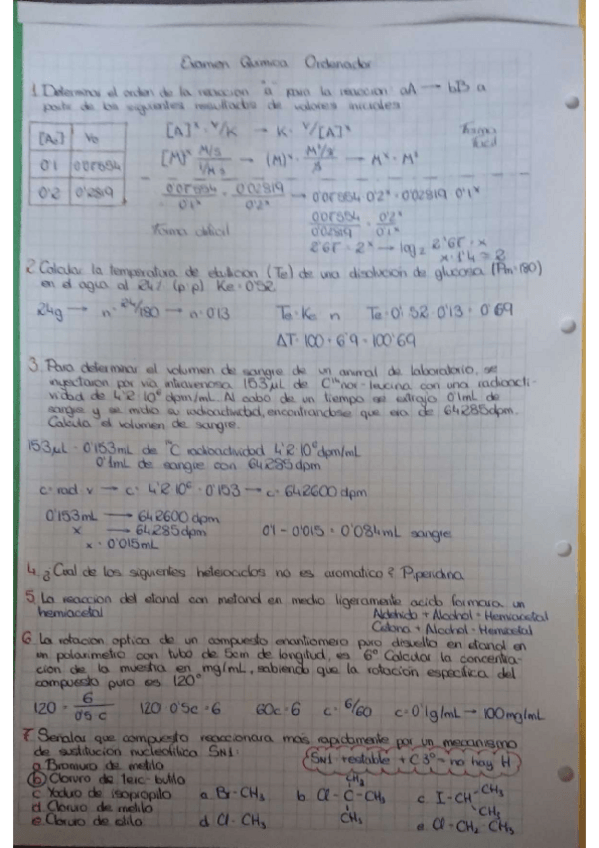 Examen Química Ordenador
1. Determinar el orden de la reacción "a" para la reacción aA → bB a
partir de los siguientes resultados de valores iniciales
[A₀] V₀
0'1 0'00554
0'2 0'02819
[A]ˣ · V/K → K · V/[A]ˣ
Forma
fácil
[M]ˣ M/s / 1/M s → (M)ˣ · M²/s / s → Mˣ · M²
0'00554 / 0'1ˣ = 0'02819 / 0'2ˣ → 0'00554 0'2ˣ = 0'02819 0'1ˣ
Forma difícil
0'00554 / 0'02819 = 0'2ˣ / 0'1ˣ
2'65 = 2ˣ → log₂ 2'65 = x
x = 1'4 ≈ 2
2. Calcular la temperatura de ebullición (Te) de una disolución de glucosa (Pm=180)
en el agua al 24% (p:p) Ke=0'52
24g → n = 24/180 → n = 0'13
Te = Ke · n Te = 0'52 · 0'13 = 0'69
ΔT = 100 + 6'9 = 100'69
3. Para determinar el volumen de sangre de un animal de laboratorio, se
inyectaron por vía intravenosa 153μL de C¹⁴ nor-leucina con una radioacti-
vidad de 4'2·10⁶ dpm/mL. Al cabo de un tiempo se extrajo 0'1mL de
sangre y se midió su radioactividad, encontrándose que era de 64285dpm.
Calcula el volumen de sangre.
153μL = 0'153mL de ¹⁴C radioactividad 4'2·10⁶ dpm/mL
0'1mL de sangre con 64285 dpm
c = rad · v → c = 4'2·10⁶ · 0'153 → c = 642600 dpm
0'153mL → 642600 dpm
x → 64285 dpm 0'1 - 0'015 = 0'084mL sangre
x = 0'015mL
4. ¿Cuál de los siguientes heterociclos no es aromático? Piperidina
5. La reacción del etanal con metanol en medio ligeramente ácido formará un
hemiacetal
Aldehído + Alcohol = Hemiacetal
Cetona + Alcohol = Hemicetal
6. La rotación óptica de un compuesto enantiomero puro disuelto en etanol en
un polarímetro con tubo de 5cm de longitud, es 6° Calcular la concentra-
ción de la muestra en mg/mL, sabiendo que la rotación específica del
compuesto puro es 120°
120 = 6 / 0'5·c 120·0'5c = 6 60c = 6 c = 6/60 c = 0'1g/mL → 100mg/mL
7. Señalar qué compuesto reaccionará más rápidamente por un mecanismo
de sustitución nucleofílica SN1:
SN1 + estable + C 3° = no hay H
a Bromuro de metilo
b Cloruro de terc-butilo
c Yoduro de isopropilo
d Cloruro de metilo
e Cloruro de etilo
a Br-CH₃
b Cl-C-CH₃
CH₃
CH₃
c I-CH CH₃
CH₃
d Cl-CH₃
e Cl-CH₂-CH₃